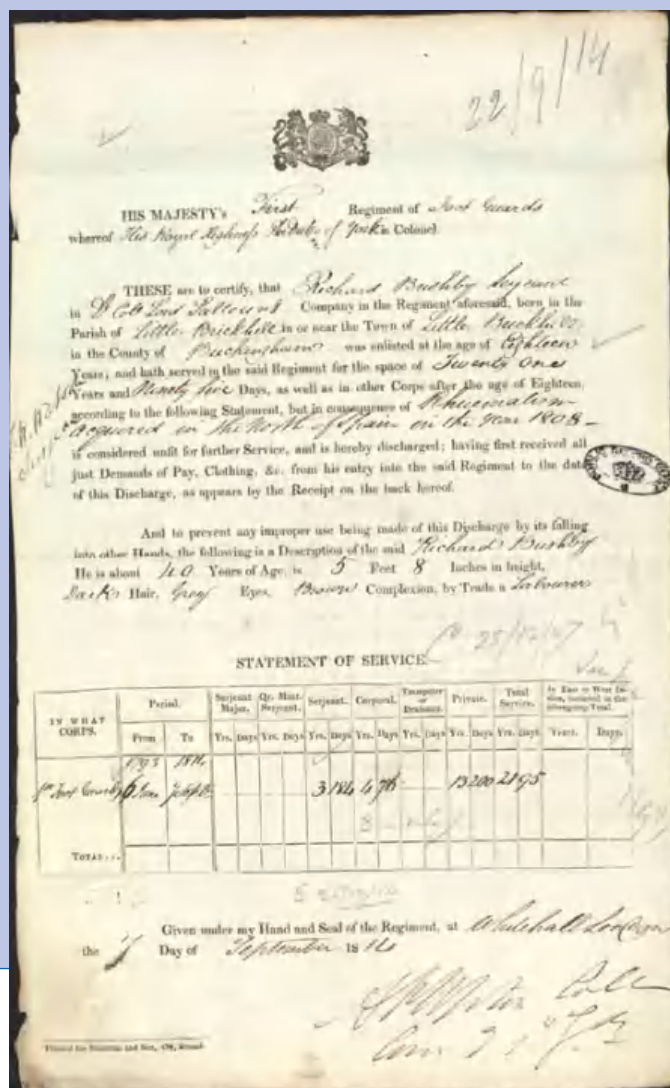 22/9/14
HIS MAJESTY's First Regiment of Foot Guards
whereof His Royal Highness The Duke of York is Colonel
THESE are to certify, that Richard Bushby Serjeant
in Lord Company in the Regiment aforesaid, born in the
Parish of Little Brickhill in or near the Town of Little Brickhill
in the County of Buckingham was enlisted at the age of Eighteen
Years; and hath served in the said Regiment for the space of Twenty One
Years and Ninety five Days, as well as in other Corps after the age of Eighteen,
according to the following Statement, but in consequence of Rheumatism
acquired in the North of Spain in the Year 1808
is considered unfit for further Service, and is hereby discharged; having first received all
just Demands of Pay, Clothing, &c. from his entry into the said Regiment to the date
of this Discharge, as appears by the Receipt on the back hereof.
And to prevent any improper use being made of this Discharge by its falling
into other Hands, the following is a Description of the said Richard Bushby
He is about 40 Years of Age, is 5 Feet 8 Inches in height,
Dark Hair, Grey Eyes, Brown Complexion, by Trade a Labourer
STATEMENT OF SERVICE.
IN WHAT CORPS. Period. Serjeant Major. Qr. Mast. Serjeant. Serjeant. Corporal. Trumpeter or Drummer. Private. Total Service. In East or West Indies, included in the foregoing Total.
From To Yrs. Days Yrs. Days Yrs. Days Yrs. Days Yrs. Days Yrs. Days Yrs. Days Years. Days.
1793 1814
Foot Guards 6 June 7 Sept 3 184 4 76 13 200 21 95
TOTAL
Given under my Hand and Seal of the Regiment, at Whitehall London
the 7 Day of September 1814